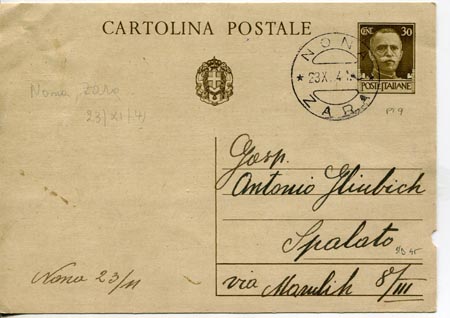 CARTOLINA POSTALE
CENT. 30
POSTE ITALIANE
NONA
23 XI 41
ZARA
Nona Zara
23/XI/41
Gosp.
Antonio Gliubich
Spalato
via Marulih 8/III
Nona 23/11